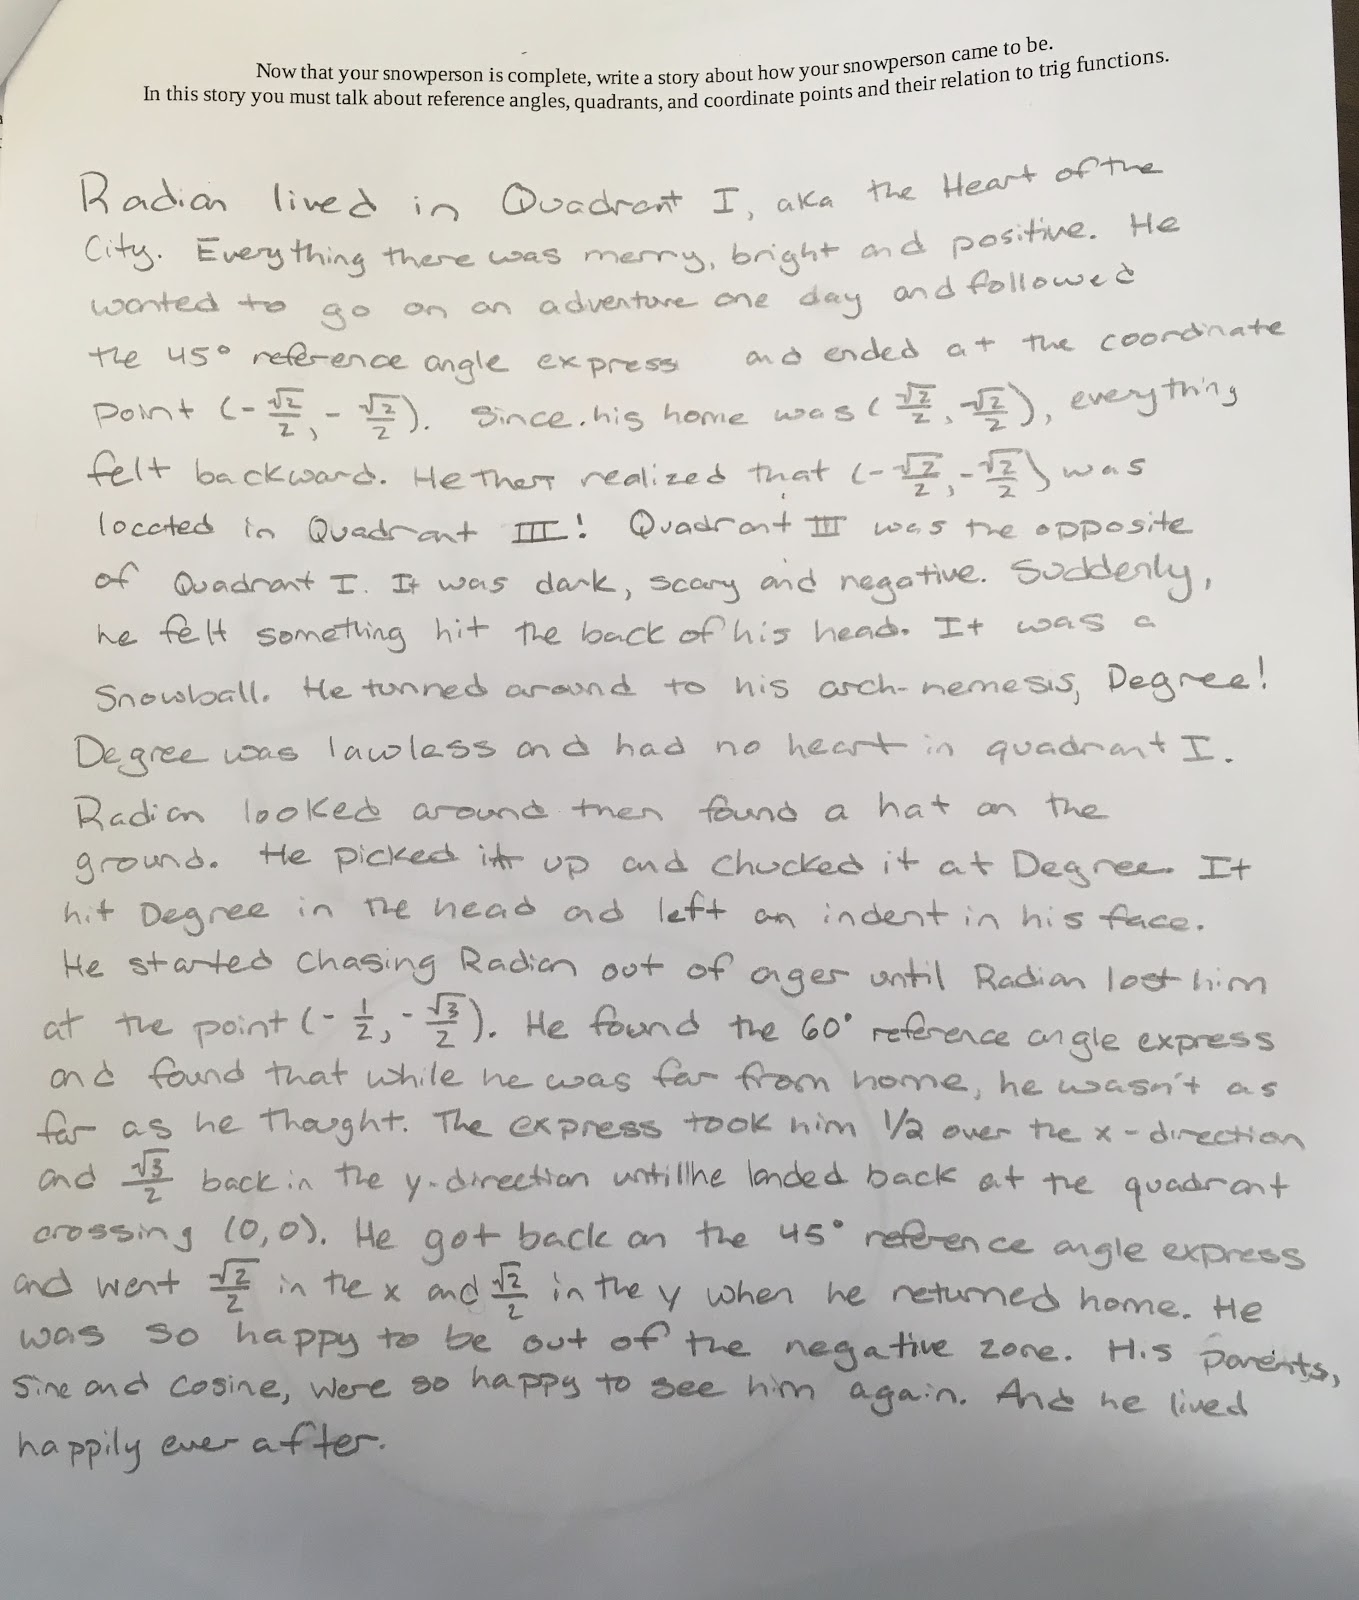 Now that your snowperson is complete, write a story about how your snowperson came to be.
In this story you must talk about reference angles, quadrants, and coordinate points and their relation to trig functions.
Radian lived in Quadrant I, aka the Heart of the
City. Everything there was merry, bright and positive. He
wanted to go on an adventure one day and followed
the 45° reference angle express and ended at the coordinate
point (-√2/2, -√2/2). Since his home was (√2/2, √2/2), everything
felt backward. He then realized that (-√2/2, -√2/2) was
located in Quadrant III! Quadrant III was the opposite
of Quadrant I. It was dark, scary and negative. Suddenly,
he felt something hit the back of his head. It was a
Snowball. He turned around to his arch-nemesis, Degree!
Degree was lawless and had no heart in quadrant I.
Radian looked around then found a hat on the
ground. He picked it up and chucked it at Degree. It
hit Degree in the head and left an indent in his face.
He started chasing Radian out of anger until Radian lost him
at the point (-1/2, -√3/2). He found the 60° reference angle express
and found that while he was far from home, he wasn't as
far as he thought. The express took him 1/2 over the x-direction
and √3/2 back in the y-direction untill he landed back at the quadrant
crossing (0,0). He got back on the 45° reference angle express
and went √2/2 in the x and √2/2 in the y when he returned home. He
was so happy to be out of the negative zone. His parents,
Sine and Cosine, were so happy to see him again. And he lived
happily ever after.